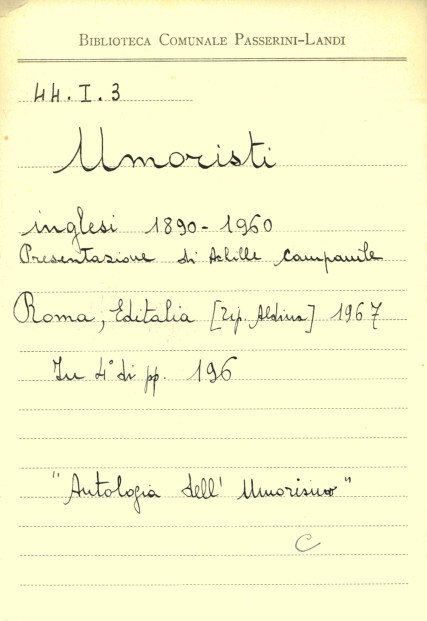 BIBLIOTECA COMUNALE PASSERINI-LANDI
44. I. 3
Umoristi
inglesi 1890-1960
Presentazione di Achille Campanile
Roma, Editalia [Tip. Aldina] 1967
In 4° di pp. 196
"Antologia dell' Umorismo"
C